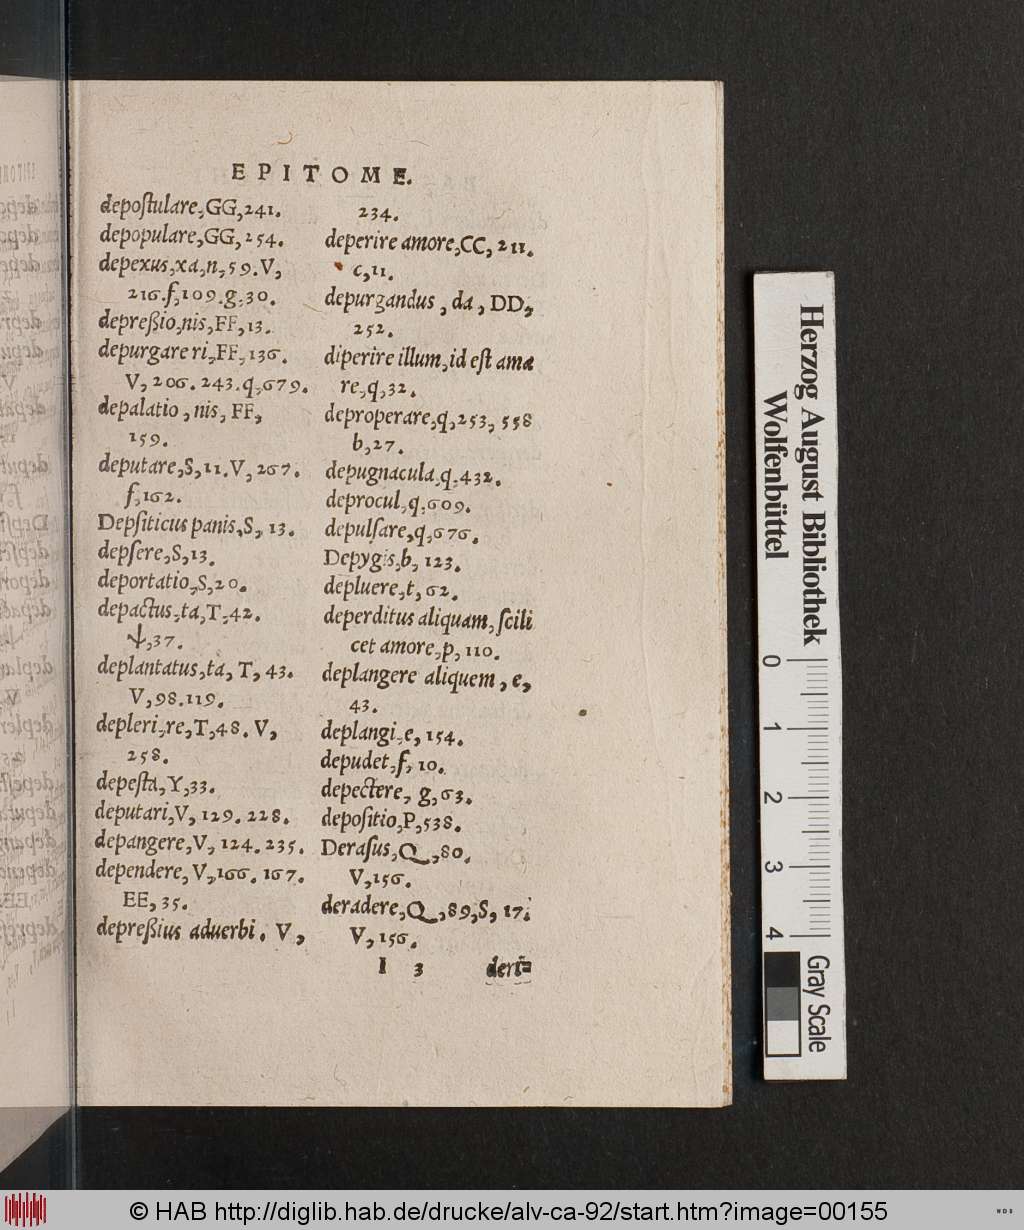 EPITOME.
depoſtulare,GG,241.
depopulare,GG,254.
depexus,xa,n,59.V,
216.f,109.g,30.
depreßio,nis,FF,13.
depurgare ri,FF,136.
V,206.243.q,679.
depalatio,nis,FF,
159.
deputare,S,11.V,267.
f,162.
Depſiticus panis,S,13.
depſere,S,13.
deportatio,S,20.
depactus,ta,T,42.
37.
deplantatus,ta,T,43.
V,98.119.
depleri,re,T,48.V,
258.
depeſta,Y,33.
deputari,V,129.228.
depangere,V,124.235.
dependere,V,166.167.
EE,35.
depreßius aduerbi. V,
234.
deperire amore,CC,211.
c,11.
depurgandus, da, DD,
252.
diperire illum,id eſt ama
re,q,32.
deproperare,q,253,558
b,27.
depugnacula,q,432.
deprocul,q,609.
depulſare,q,676.
Depygis,b,123.
depluere,t,62.
deperditus aliquam,ſcili
cet amore,p,110.
deplangere aliquem,e,
43.
deplangi,e,154.
depudet,f,10.
depectere,g,63.
depoſitio,P,538.
Deraſus,Q,80.
V,156.
deradere,Q,89,S,17.
V,156.
I 3 deri=
Herzog August Bibliothek
Wolfenbüttel
0 1 2 3 4
Gray Scale
© HAB http://diglib.hab.de/drucke/alv-ca-92/start.htm?image=00155